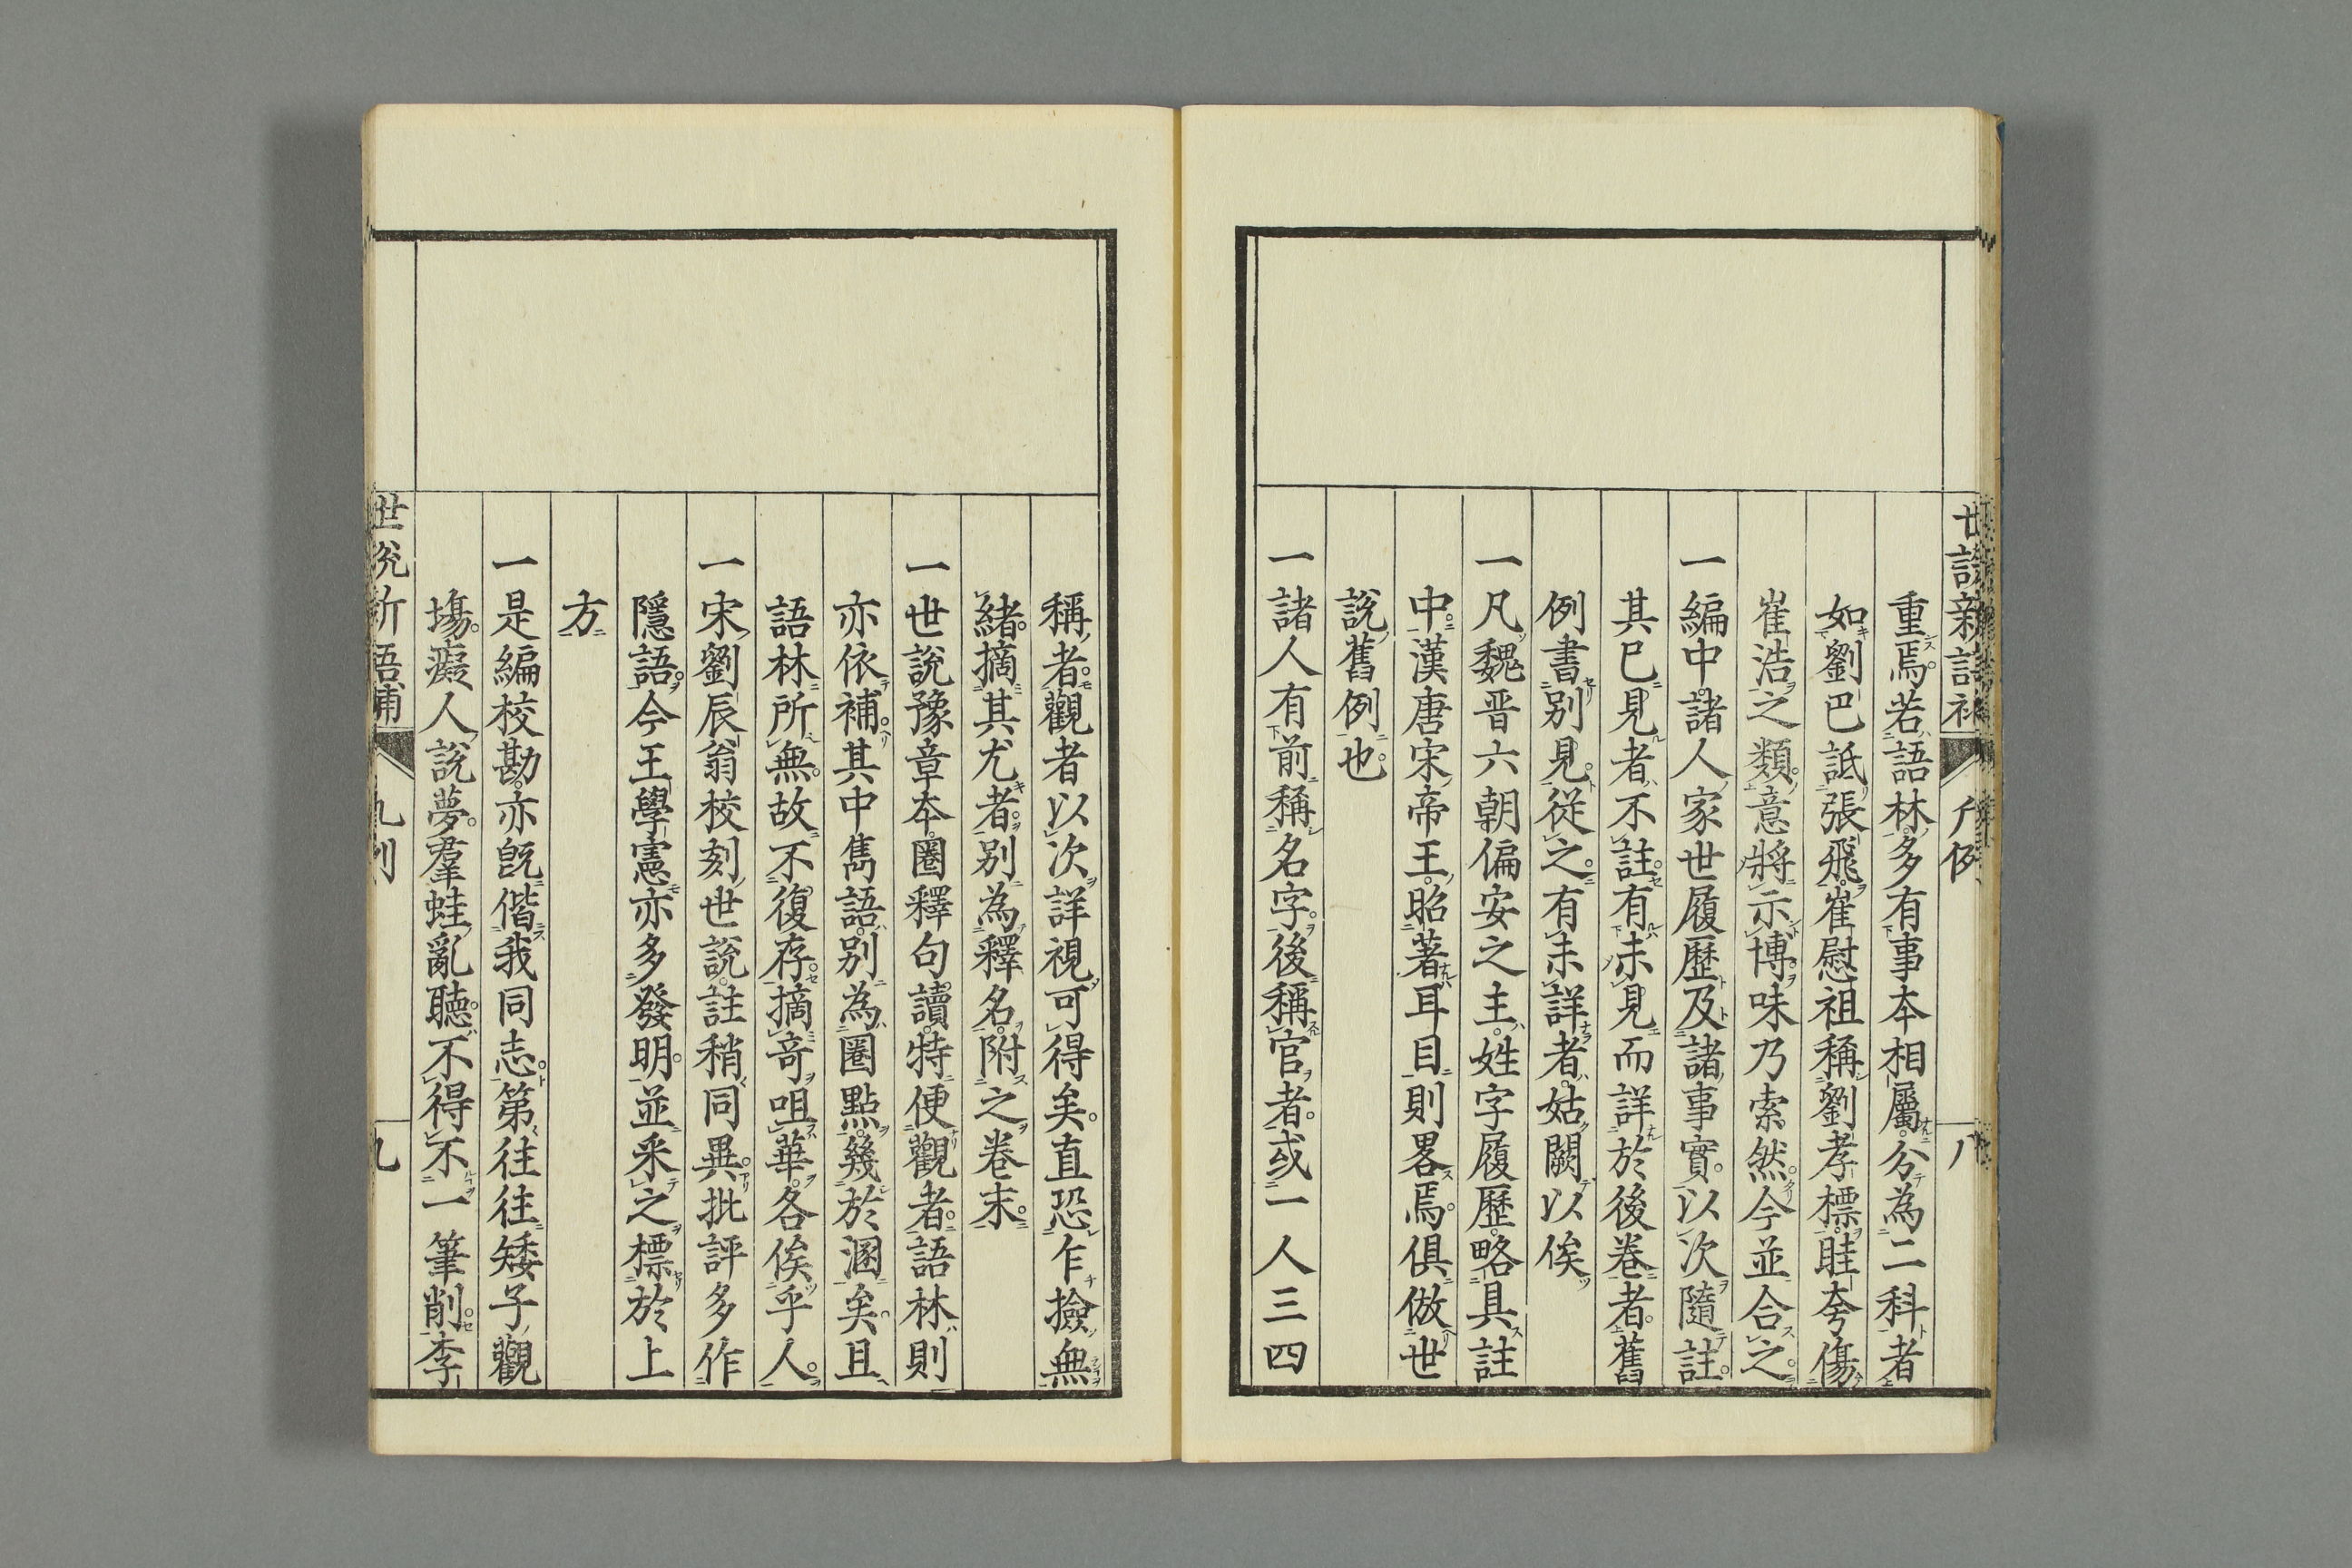 重焉若語林多有事本相屬分為二科者
如劉巴詆張飛崔慰祖稱劉孝標眭夸傷
崔浩之類意將示博味乃索然今並合之
一編中諸人家世履歷及諸事實以次隨註
其已見者不註有未見而詳於後卷者舊
例書別見從之有未詳者姑闕以俟
一凡魏晋六朝偏安之主姓字履歷略具註
中漢唐宋帝王昭著耳目則畧焉俱倣世
說舊例也
一諸人有前稱名字後稱官者或一人三四
稱者觀者以次詳視可得矣直恐乍撿無
緒摘其尤者別為釋名附之卷末
一世說豫章本圈釋句讀特便觀者語林則
亦依補其中雋語別為圈點幾於溷矣且
語林所無故不復存摘奇咀華各俟乎人
一宋劉辰翁校刻世說註稍同異批評多作
隱語今王學憲亦多發明並采之標於上
方
一是編校勘亦旣偕我同志第往往矮子觀
塲癡人說夢羣蛙亂聽不得不一筆削李
世說新語補 九